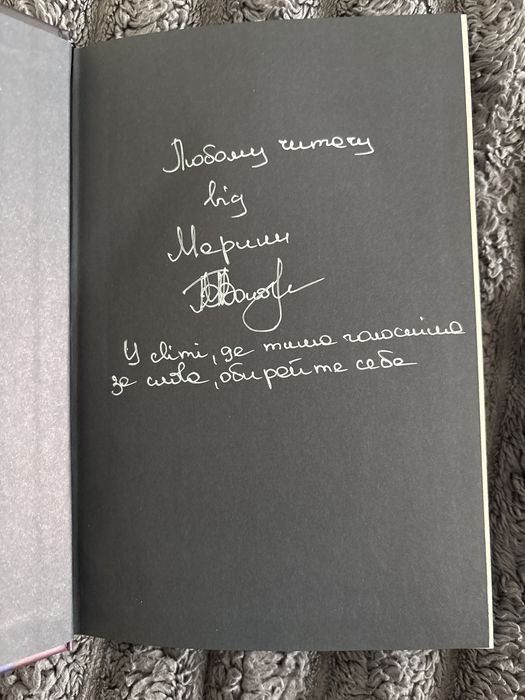 Любому читачу
від
Марини
У світі, де тиша голосніша
за слова, обирайте себе